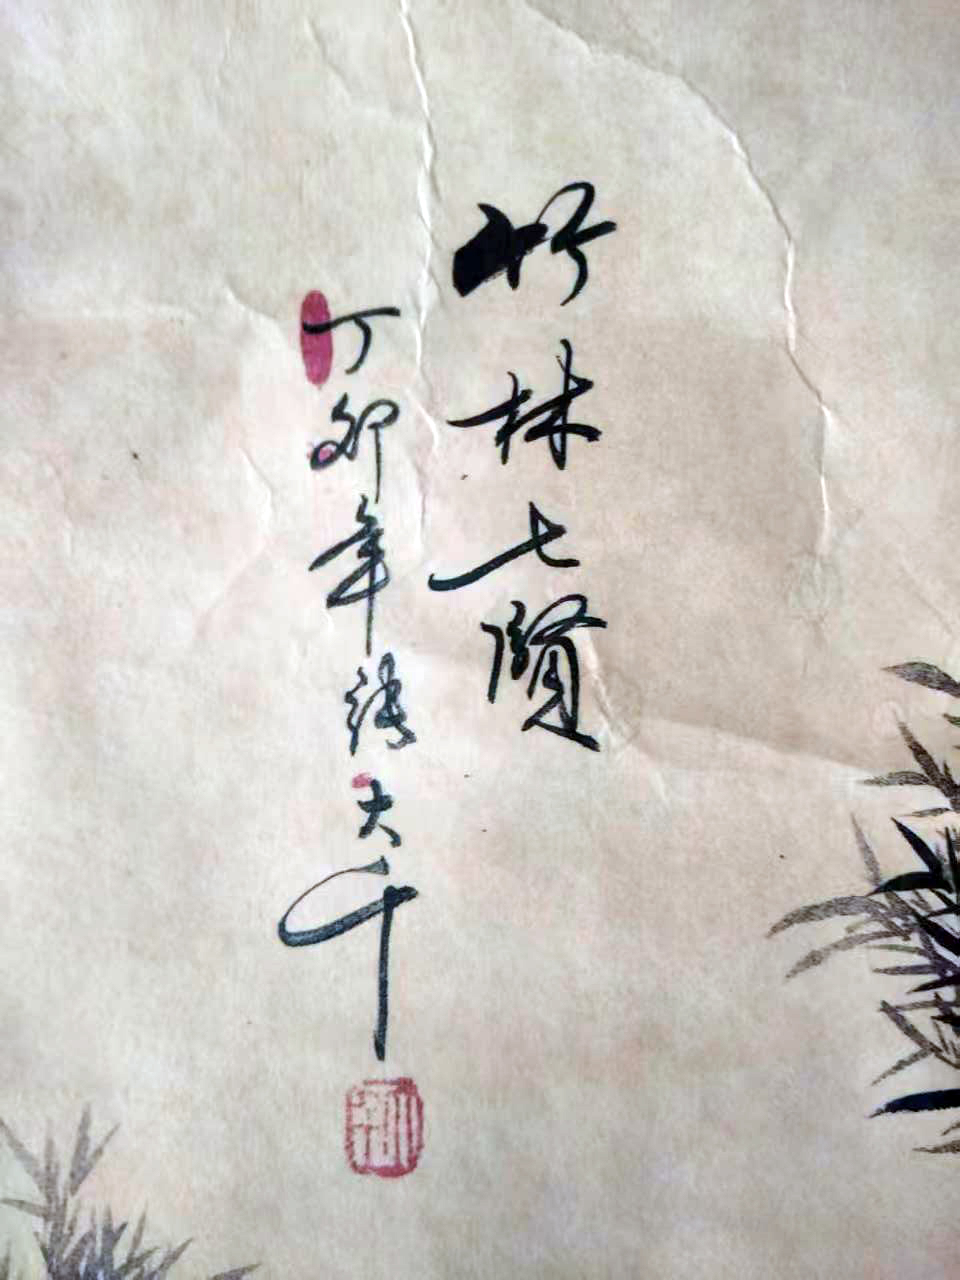 竹林七贤
丁卯年张大千